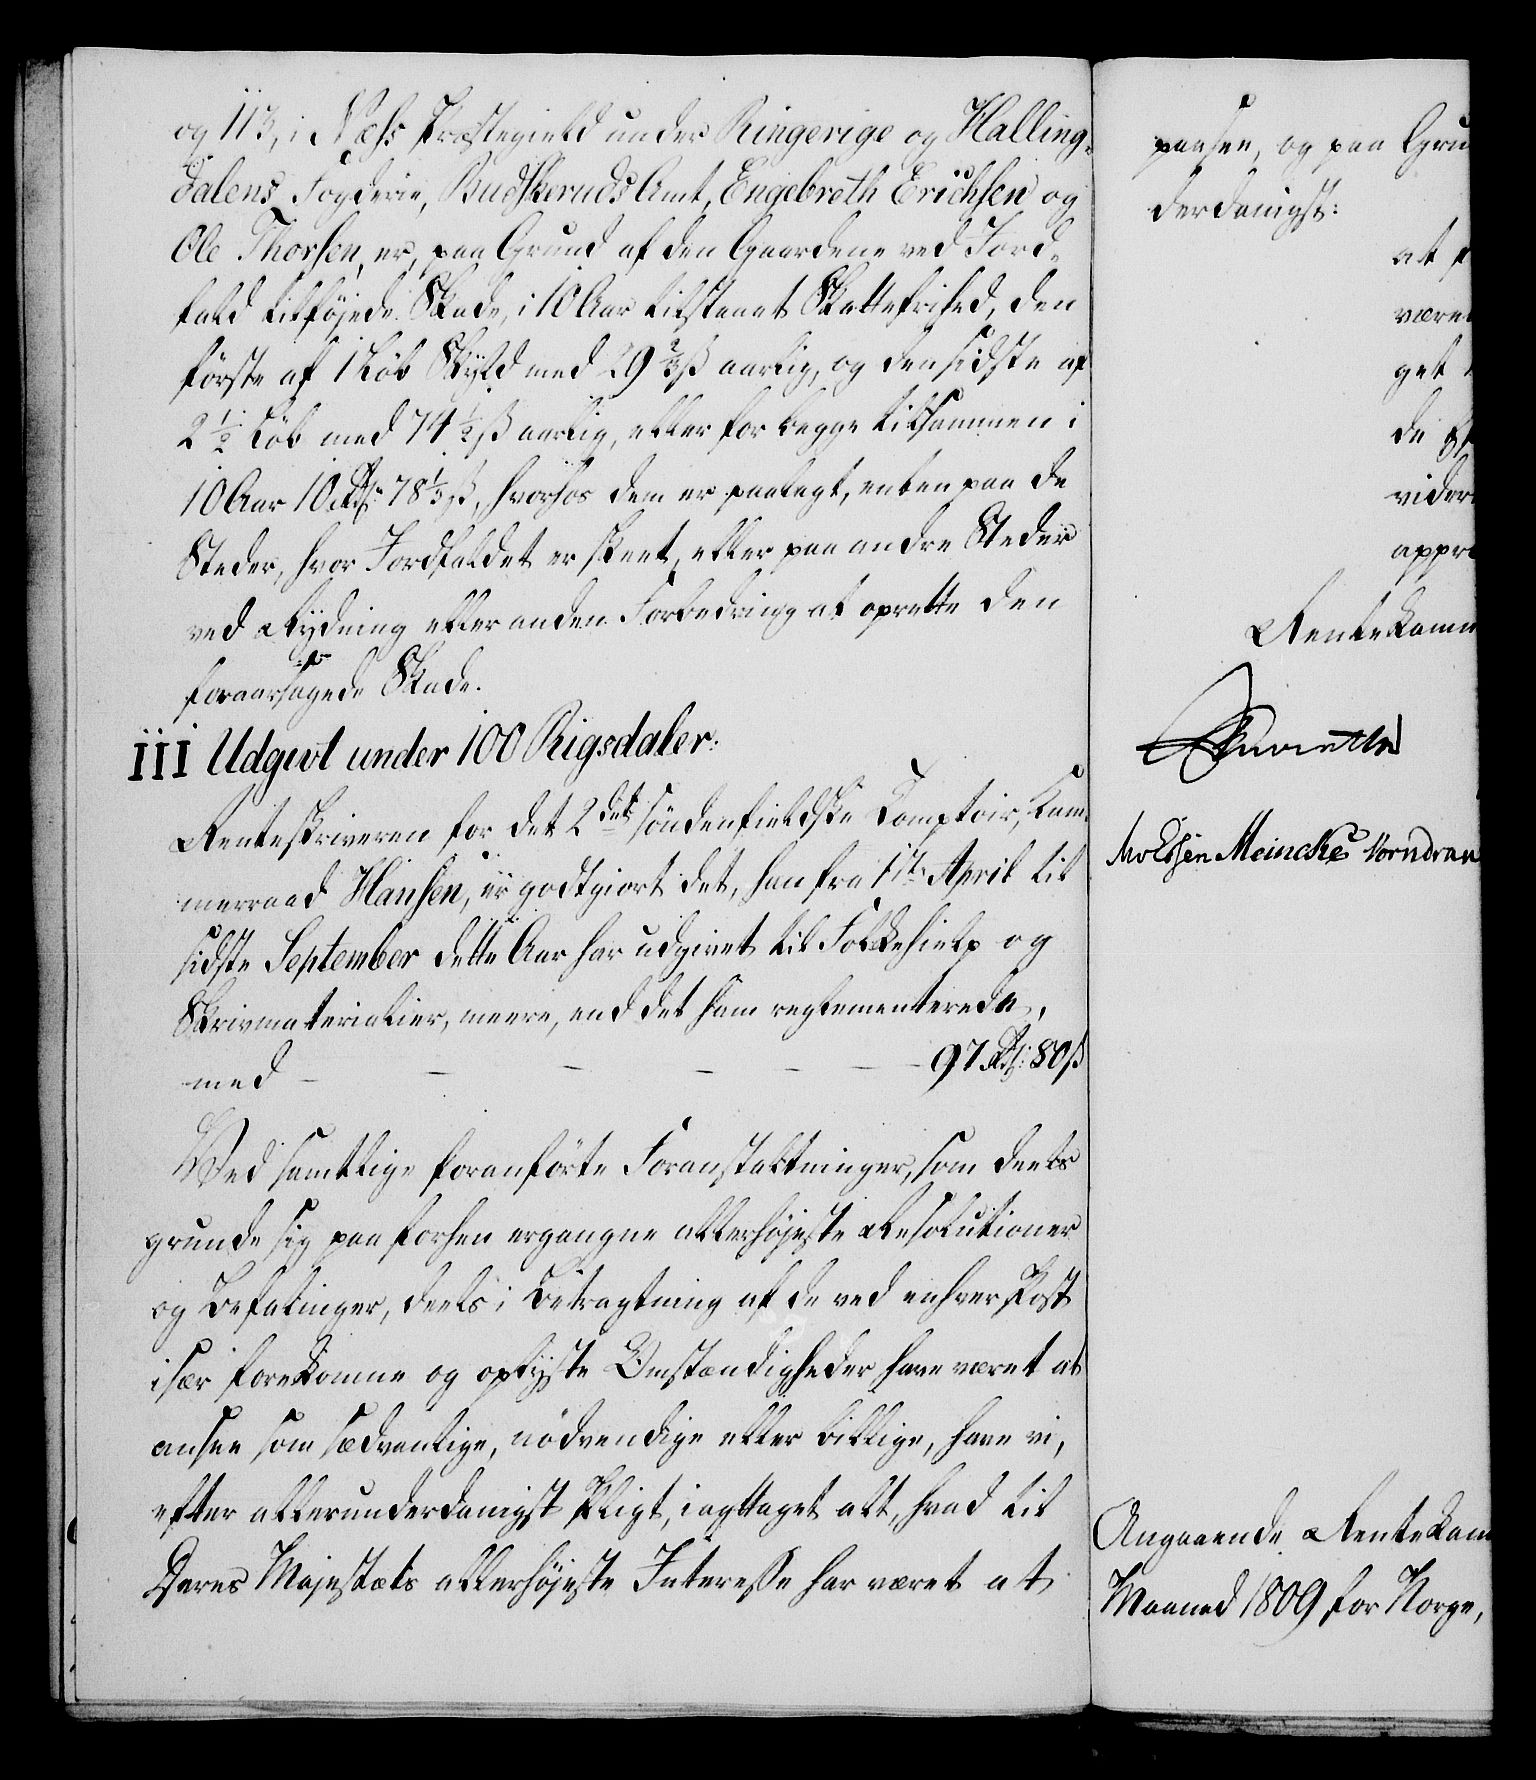 og 113, i Næss Præstegield under Ringerige og Halling-
dalens Fogderie, Budskeruds Amt, Engebreth Erichsen og
Ole Thorsen, er, paa Grund af den Gaardene ved Jord-
fald tilföjede Skade, i 10 Aar tilstaaet Skattefrihed, den
förste af 1 Löb Skyld med 29 2/3 ß aarlig, og den sidste af
2 1/2 Löb med 74 1/2 ß aarlig, eller for begge tilsammen i
10 Aar 10 Rd: 78 1/3 ß, hvorhos dem er paalagt, enten paa de
Steder, hvor Jordfaldet er skeet, eller paa andre Steder
ved Rydning eller anden Forbedring at oprette den
foraarsagede Skade.
III Udgivt under 100 Rigsdaler:
Renteskriveren for det 2det söndenfieldske Comptoir, Kam-
merraad Hansen, er godtgiort det, han fra 1ste April til
sidste September dette Aar har udgivet til Folkehielp og
Skrivmaterialier, meere, end det ham reglementerede,
med — — — — — 97 Rd: 80 ß
Ved samtlige foranförte Foranstaltninger, som deels
grunde sig paa forhen ergangne allerhöjeste Resolutioner
og Befalinger, deels i Betragtning af de ved enhver Post
især forekomne og oplyste Omstændigheder have været at
ansee som sædvanlige, nödvendige eller billige, have vi,
efter allerunderdanigst Pligt, iagttaget alt, hvad til
Deres Majestæts allerhöjeste Interesse har været at
passee, og paa Gru
derdanigst:
at
være
get
de
vider
appro
Rentekamm
Meincke Vorndran
Angaaende Rentekam
Maaned 1809 for Norge,